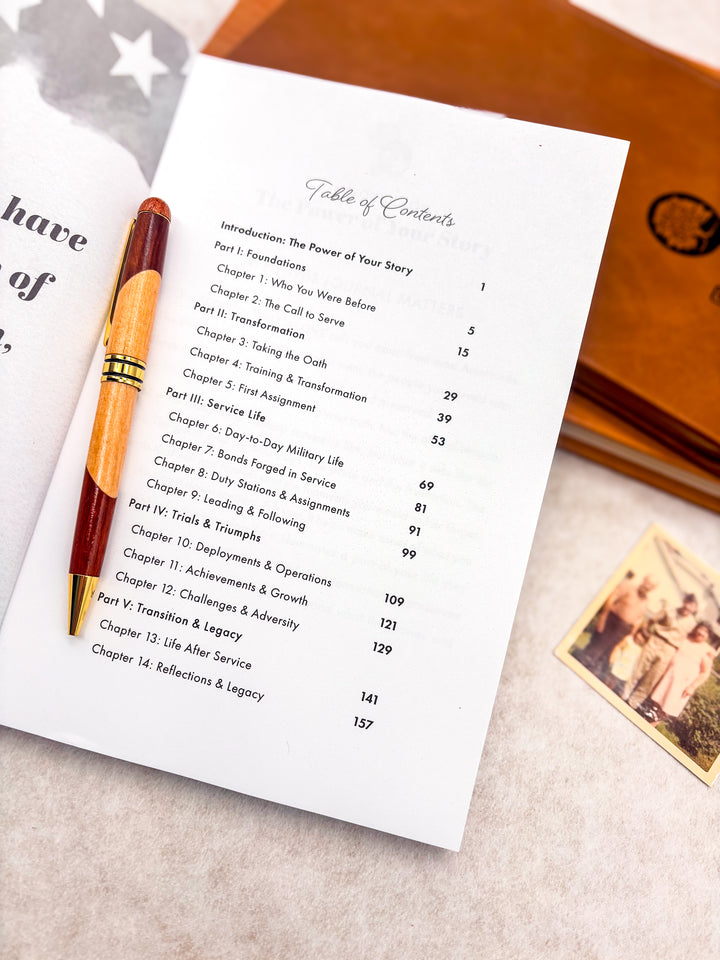 have
of
Table of Contents
Introduction: The Power of Your Story 1
Part I: Foundations
Chapter 1: Who You Were Before 5
Chapter 2: The Call to Serve 15
Part II: Transformation
Chapter 3: Taking the Oath 29
Chapter 4: Training & Transformation 39
Chapter 5: First Assignment 53
Part III: Service Life
Chapter 6: Day-to-Day Military Life 69
Chapter 7: Bonds Forged in Service 81
Chapter 8: Duty Stations & Assignments 91
Chapter 9: Leading & Following 99
Part IV: Trials & Triumphs
Chapter 10: Deployments & Operations 109
Chapter 11: Achievements & Growth 121
Chapter 12: Challenges & Adversity 129
Part V: Transition & Legacy
Chapter 13: Life After Service 141
Chapter 14: Reflections & Legacy 157